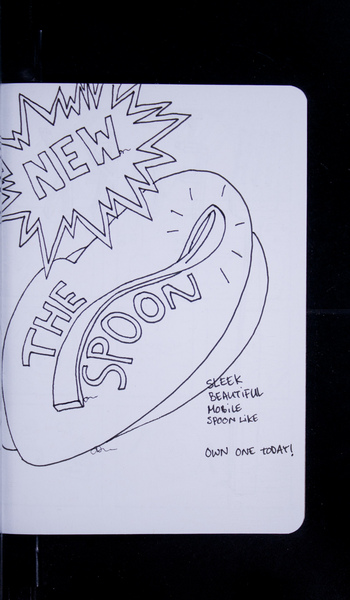 NEW
THE
SPOON
SLEEK
BEAUTIFUL
MOBILE
SPOON LIKE
OWN ONE TODAY!